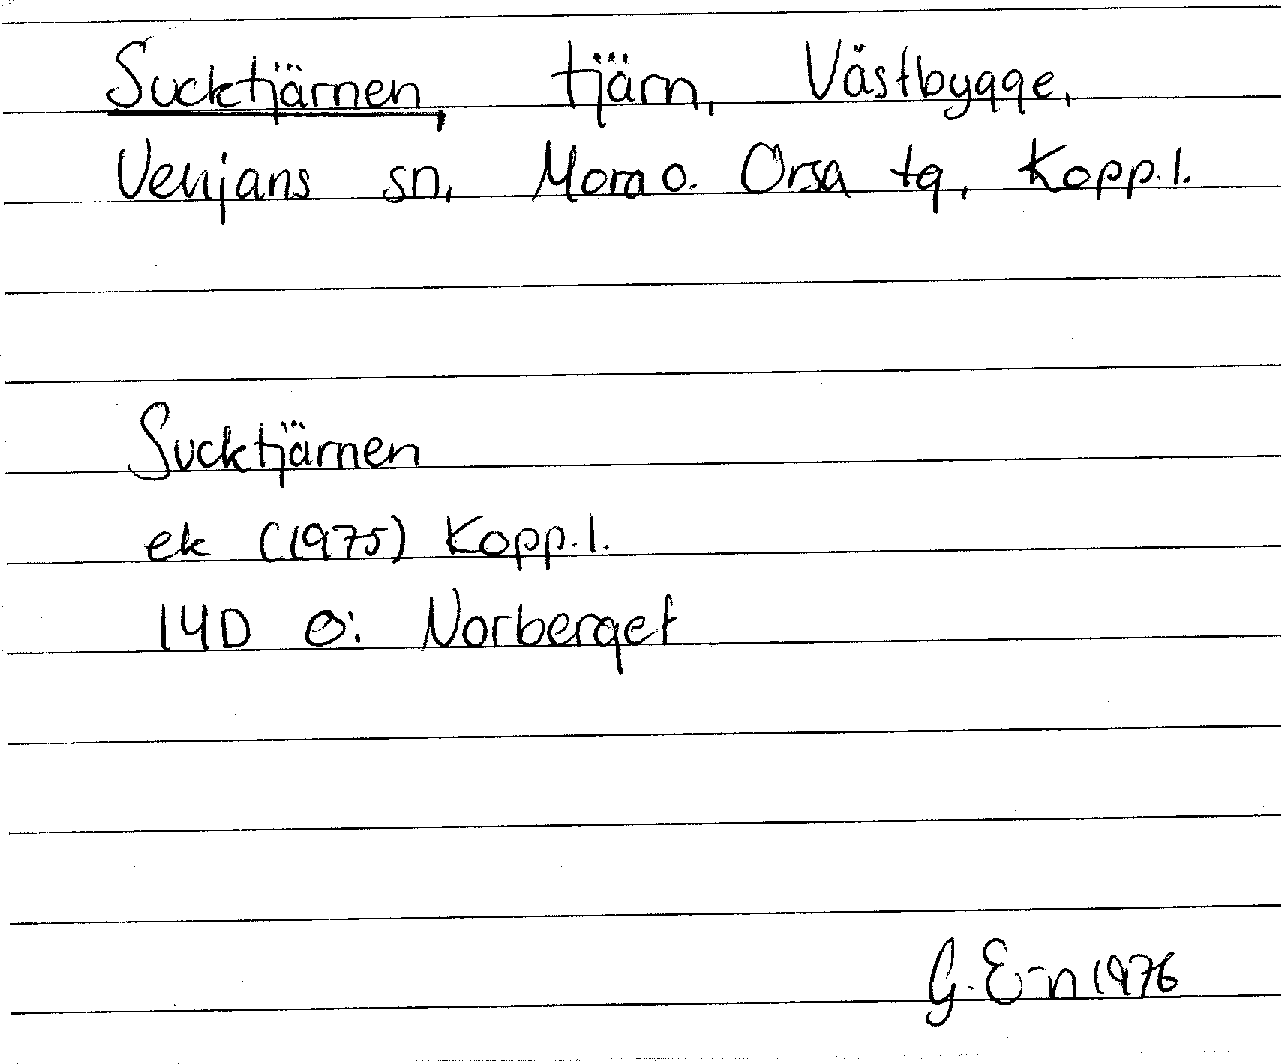 Sucktjärnen, tjärn, Västbygge,
Venjans sn, Mora o. Orsa tg, Kopp.l.
Sucktjärnen
ek (1975) Kopp.l.
14D Ö: Norberget
G. E-n 1976